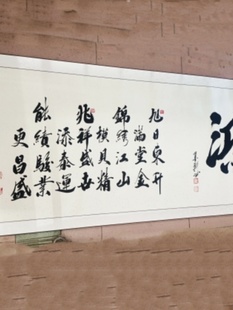 旭日東升
滿堂金
錦綉江山
模具精
兆祥盛世
添泰運
能績駿業
更昌盛